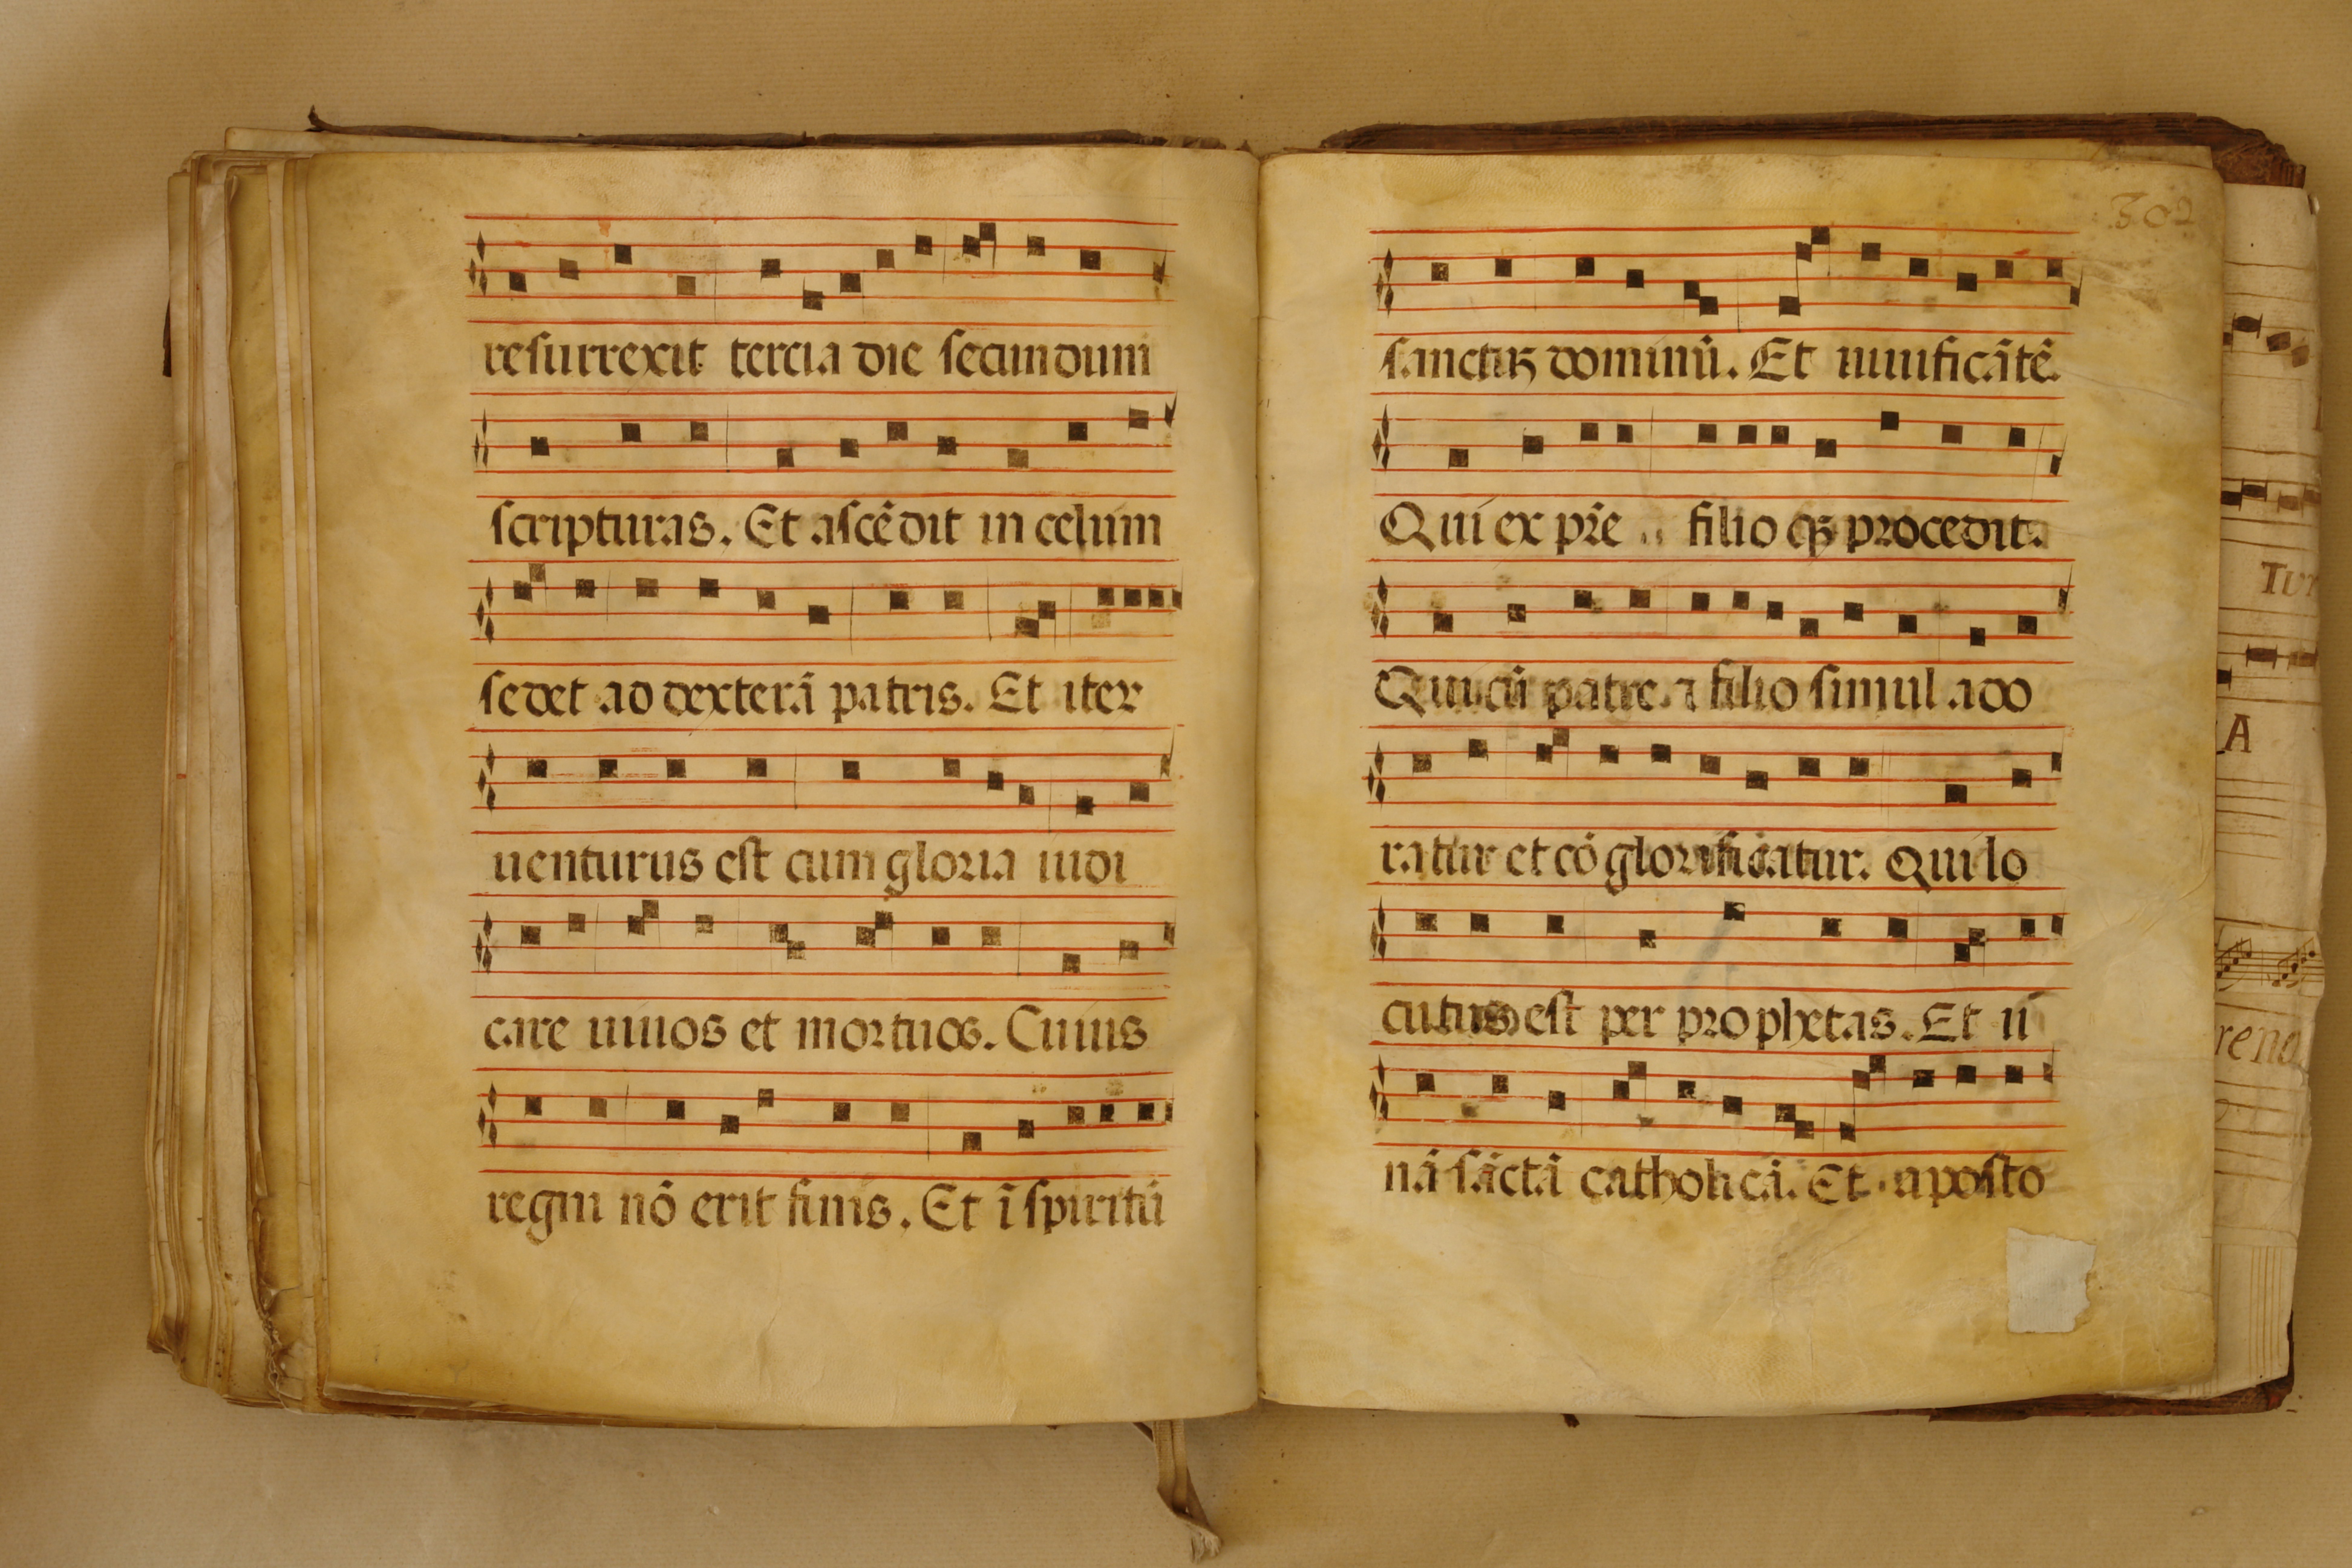 resurrexit tercia die secundum
scripturas. Et ascēdit in celum
sedet ad dexterā patris. Et iter
uenturus est cum gloria iudi
care uiuos et mortuos. Cuius
regni nō erit finis. Et ī spiritū
302
sanctuꝫ dominū. Et uiuificātē.
Qui ex pr̄e filioqꝫ procedit.
Qui cū patre ⁊ filio simul ado
ratur et cō glorificatur. Qui lo
cutus est per prophetas. Et u
nā sāctā catholicā. Et aposto